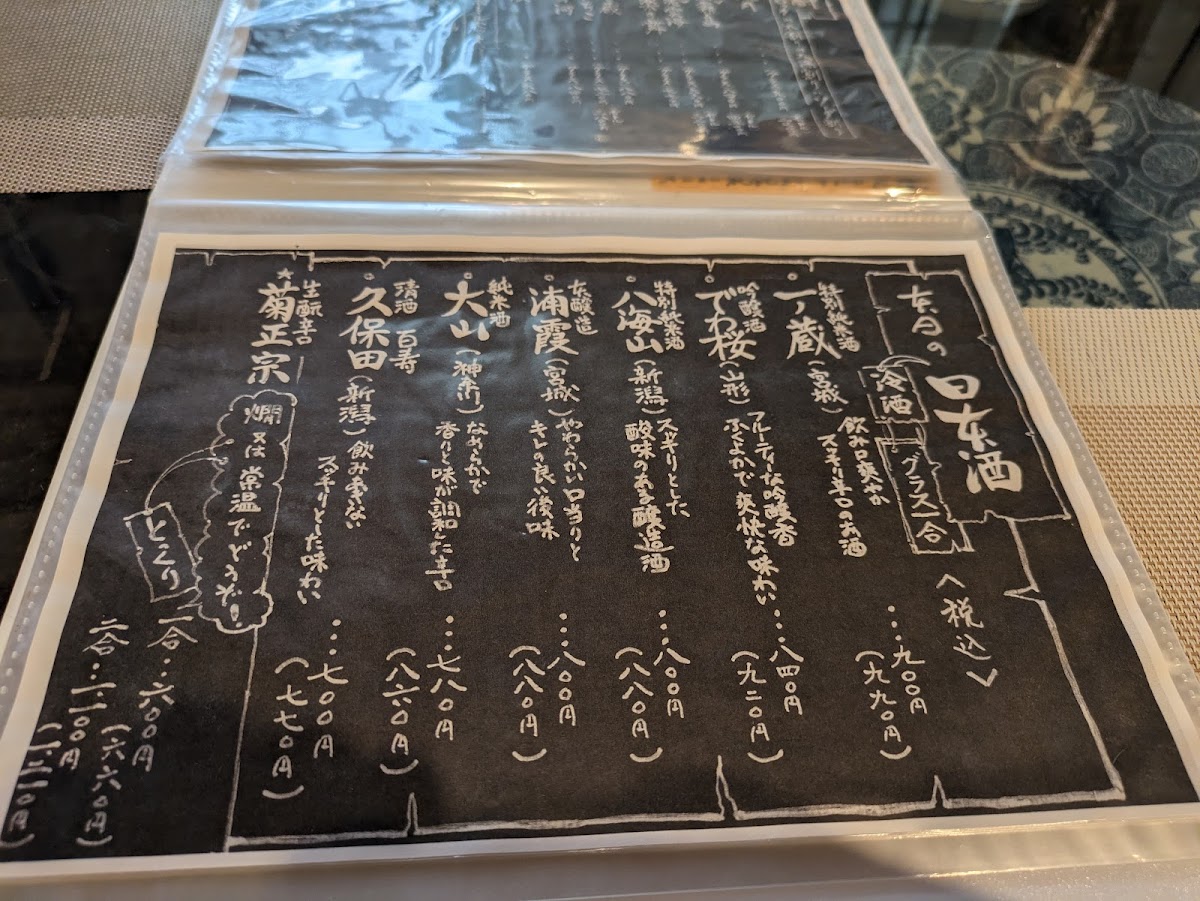 本日の
日本酒
冷酒
グラス一合
〈税込〉
特別純米酒
一ノ蔵(宮城)
飲み口爽やか
スッキリ辛口のお酒
…九〇〇円
(九九〇円)
吟醸酒
でわ桜(山形)
フルーティーな吟醸香
ふくよかで爽快な味わい
…八四〇円
(九二〇円)
特別純米酒
八海山(新潟)
スッキリとした
酸味のある醸造酒
…八〇〇円
(八八〇円)
本醸造
浦霞(宮城)
やわらかい口当りと
キレの良い後味
…八〇〇円
(八八〇円)
純米酒
大山(神奈川)
なめらかで
香りと味が調和した辛口
…七八〇円
(八六〇円)
清酒 百寿
久保田(新潟)
飲みあきない
スッキリとした味わい
…七〇〇円
(七七〇円)
生酛辛口
★菊正宗
燗又は常温でどうぞ!
とっくり
一合…六〇〇円
(六六〇円)
二合…一、二〇〇円